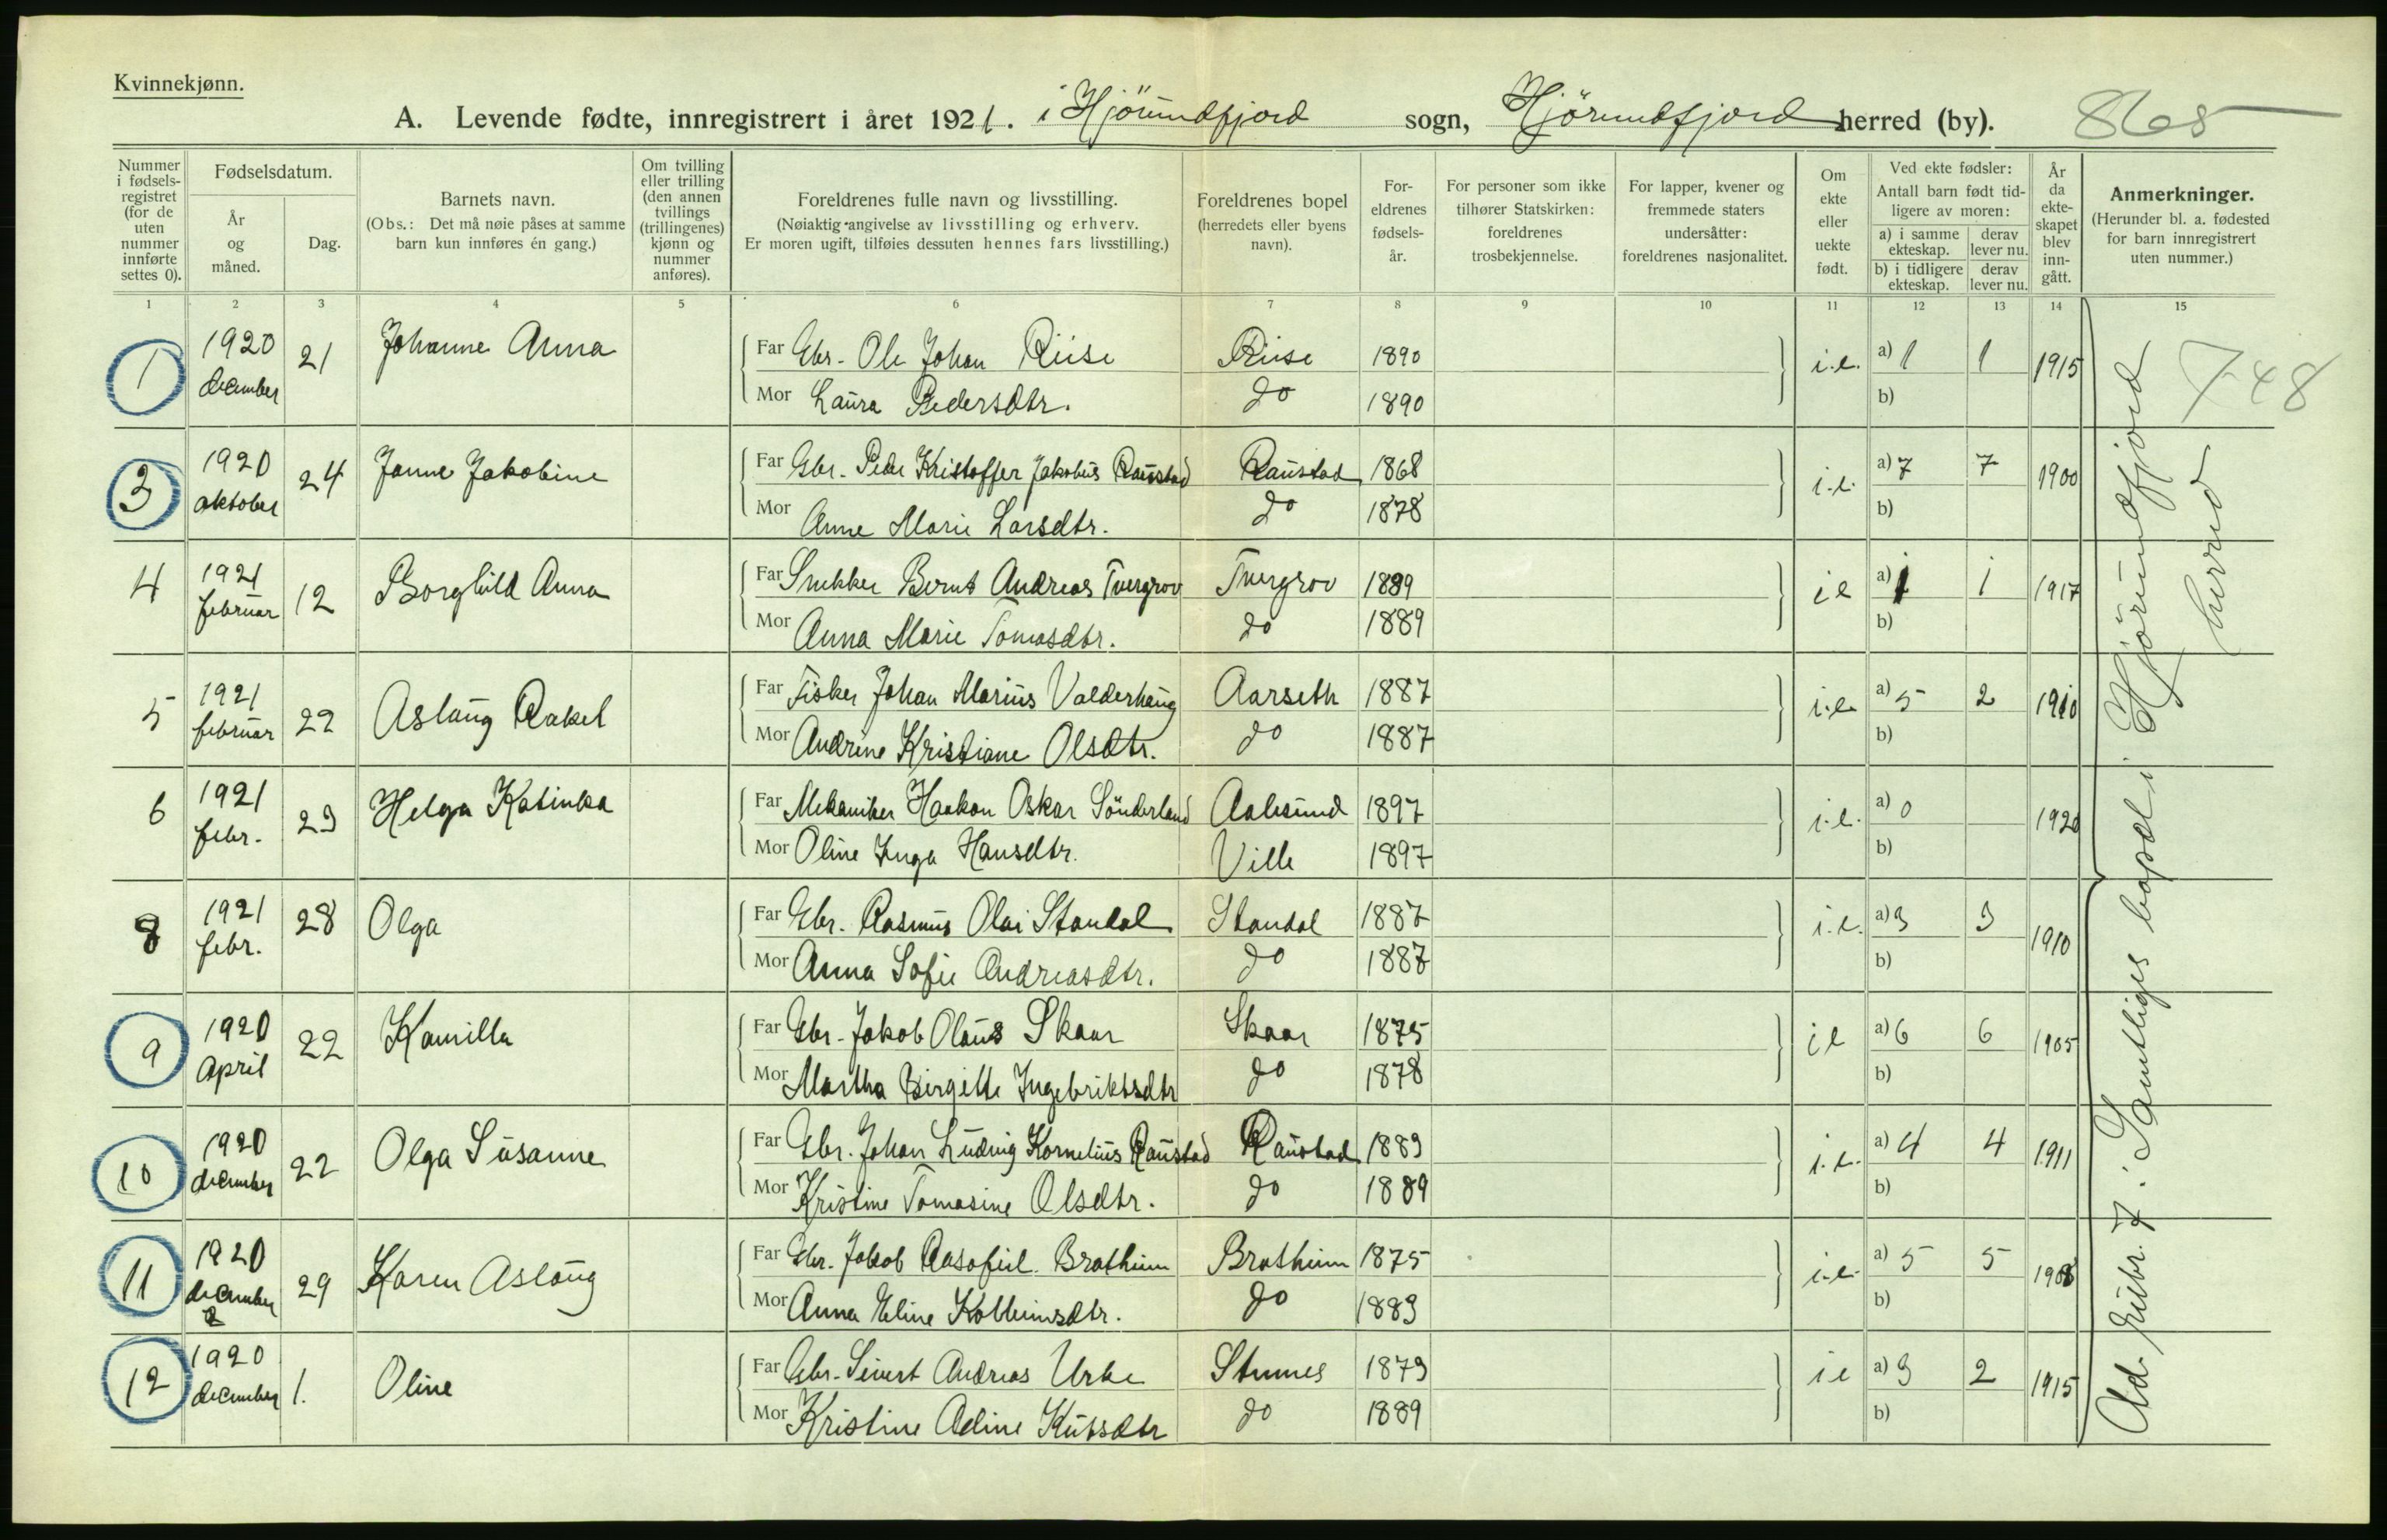 Kvinnekjønn.
A. Levende fødte, innregistrert i året 1921. i Hjörundfjord sogn, Hjörundfjord herred (by). 865
Nummer i fødsels-registret (for de uten nummer innførte settes 0).
Fødselsdatum.
År og måned.
Dag.
Barnets navn.
(Obs.: Det må nøie påses at samme barn kun innføres én gang.)
Om tvilling eller trilling (den annen tvillings (trillingenes) kjønn og nummer anføres).
Foreldrenes fulle navn og livsstilling.
(Nøiaktig angivelse av livsstilling og erhverv.
Er moren ugift, tilføies dessuten hennes fars livsstilling.)
Foreldrenes bopel
(herredets eller byens navn).
For-eldrenes fødsels-år.
For personer som ikke tilhører Statskirken: foreldrenes trosbekjennelse.
For lapper, kvener og fremmede staters undersåtter: foreldrenes nasjonalitet.
Om ekte eller uekte født.
Ved ekte fødsler:
Antall barn født tid-ligere av moren:
a) i samme ekteskap.
derav lever nu.
b) i tidligere ekteskap.
derav lever nu.
År da ekte-skapet blev inn-gått.
Anmerkninger.
(Herunder bl. a. fødested for barn innregistrert uten nummer.)
1 2 3 4 5 6 7 8 9 10 11 12 13 14 15
1 1920 december 21 Johanne Anna Far Gbr. Ole Johan Riise Riise 1890 i.e. a) 1 1 1915
Mor Laura Pedersdtr. do 1890 b)
3 1920 oktober 24 Janne Jakobine Far Gbr. Peder Kristoffer Jakobus Raustad Raustad 1868 i.e. a) 7 7 1900
Mor Anne Marie Larsdtr. do 1878 b)
4 1921 februar 12 Borghild Anna Far Snekker Bernt Andreas Tvergrov Tvergrov 1889 i e a) 1 1 1917
Mor Anna Marie Tomasdtr. do 1889 b)
5 1921 februar 22 Aslaug Rakel Far Fisker Johan Marius Valderhaug Aarseth 1887 i.e. a) 5 2 1910
Mor Andrine Kristiane Olsdtr. do 1887 b)
6 1921 febr. 23 Helga Katinka Far Mekaniker Haakon Oskar Sönderland Aalesund 1897 i.e. a) 0 1920
Mor Oline Inga Hansdtr. Ville 1897 b)
8 1921 febr. 28 Olga Far Gbr. Rasmus Olai Standal Standal 1887 i.e. a) 3 3 1910
Mor Anna Sofie Andreasdtr. do 1887 b)
9 1920 April 22 Kamilla Far Gbr. Jakob Olaus Skaar Skaar 1875 i e a) 6 6 1905
Mor Martha Birgitte Ingebriktsdtr do 1878 b)
10 1920 december 22 Olga Susanne Far Gbr. Johan Ludvig Kornelius Raustad Raustad 1883 i.e. a) 4 4 1911
Mor Kristine Tomasine Olsdtr. do 1889 b)
11 1920 december 29 Karen Aslaug Far Gbr. Jakob Bratheim Bratheim 1875 i.e. a) 5 5 1908
Mor Anna Eline do 1883 b)
12 1920 december 1. Oline Far Gbr. Sivert Andreas Urke Stennes 1873 i e a) 3 2 1915
Mor Kristine Adine do 1889 b)
748
Ad rubr. 7: Samtliges bopæl i Hjörundfjord
herred